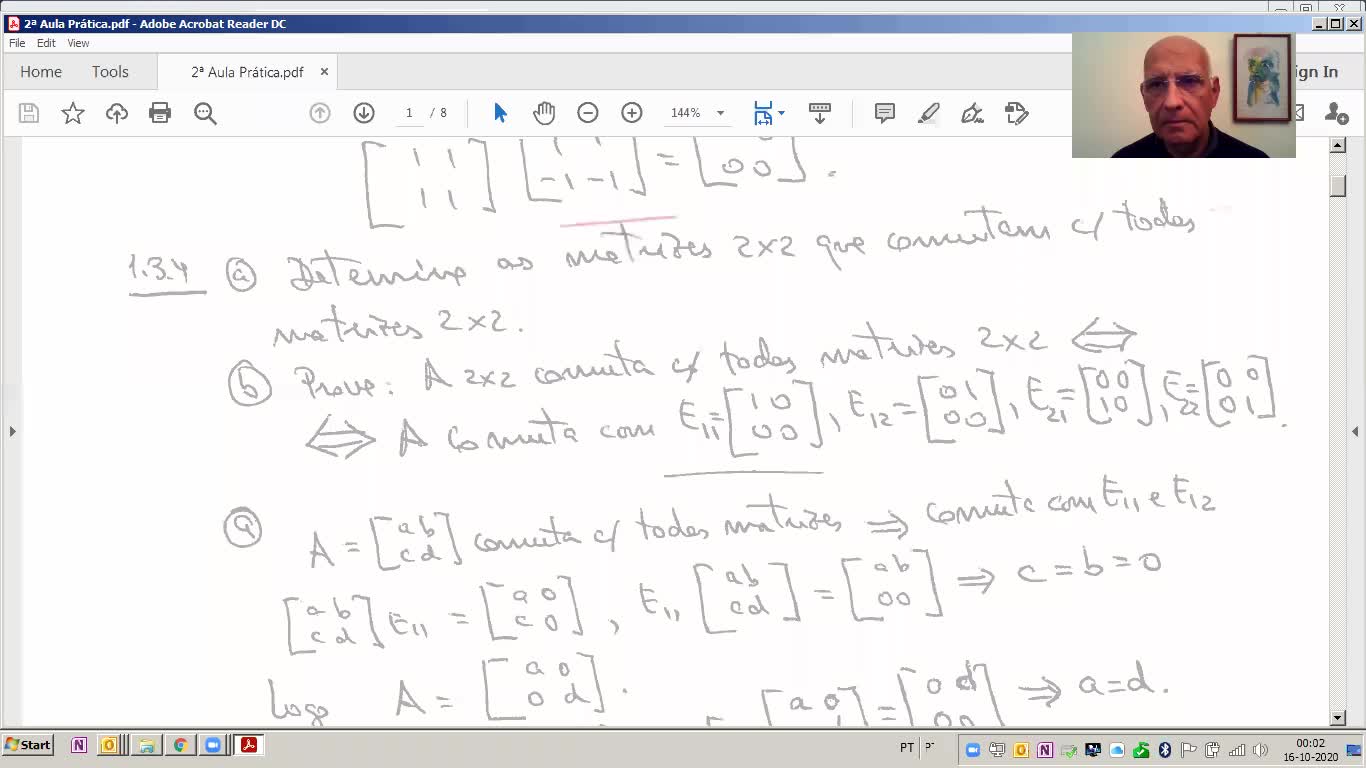 2ª Aula Prática.pdf - Adobe Acrobat Reader DC
File Edit View
Home Tools 2ª Aula Prática.pdf × gn In
1 / 8 144%
[1 1; 1 1] [1 1; -1 -1] = [0 0; 0 0].
1.3.4 (a) Determine as matrizes 2×2 que comutam c/ todas
matrizes 2×2.
(b) Prove: A 2×2 comuta c/ todas matrizes 2×2 ⟺
⟺ A comuta com E₁₁=[1 0; 0 0], E₁₂=[0 1; 0 0], E₂₁=[0 0; 1 0], E₂₂=[0 0; 0 1].
(a) A = [a b; c d] comuta c/ todas matrizes ⟹ comuta com E₁₁ e E₁₂
[a b; c d] E₁₁ = [a 0; c 0], E₁₁ [a b; c d] = [a b; 0 0] ⟹ c = b = 0
Logo A = [a 0; 0 d]. [a 0 = [0 d; 0 0] ⟹ a=d.
Start PT 00:02
16-10-2020